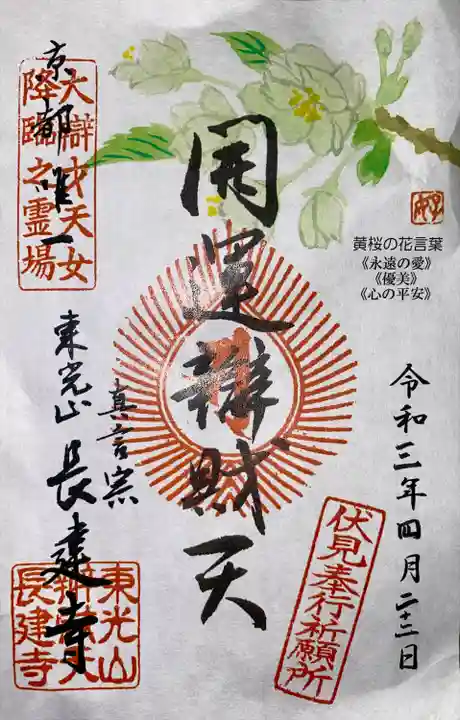 黄桜の花言葉
《永遠の愛》
《優美》
《心の平安》
令和三年四月二十三日
伏見奉行祈願所
開運辨財天
京都唯一
大辯才天女
降臨之霊場
真言宗
東光山 長建寺
東光山
辨財天
長建寺